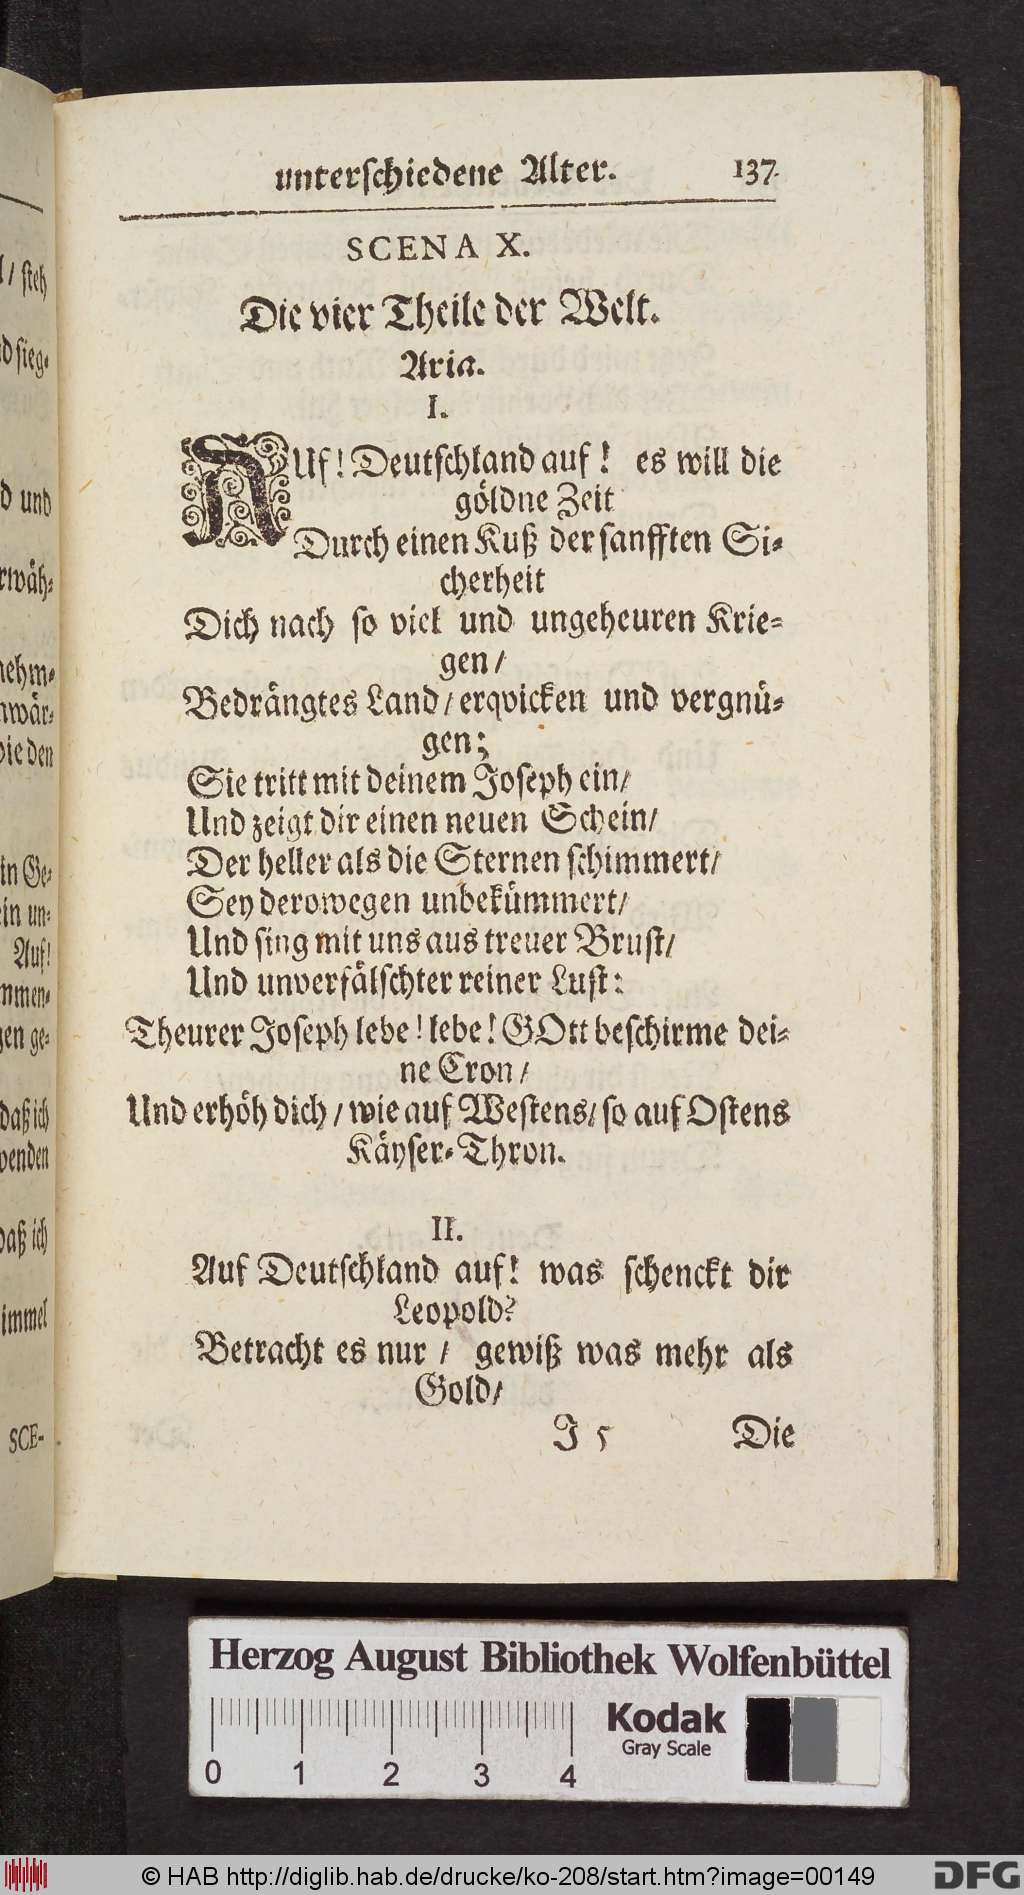 unterschiedene Alter. 137.
SCENA X.
Die vier Theile der Welt.
Aria.
I.
AUf! Deutschland auf! es will die
göldne Zeit
Durch einen Kuß der sanfften Si-
cherheit
Dich nach so viel und ungeheuren Krie-
gen/
Bedrängtes Land/ erqvicken und vergnü-
gen;
Sie tritt mit deinem Joseph ein/
Und zeigt dir einen neuen Schein/
Der heller als die Sternen schimmert/
Sey derowegen unbekümmert/
Und sing mit uns aus treuer Brust/
Und unverfälschter reiner Lust:
Theurer Joseph lebe! lebe! GOtt beschirme dei-
ne Cron/
Und erhöh dich/ wie auf Westens/ so auf Ostens
Käyser-Thron.
II.
Auf Deutschland auf! was schenckt dir
Leopold?
Betracht es nur/ gewiß was mehr als
Gold/
J 5 Die
l/ steh
d sieg-
d und
rwäh-
nehm-
nwär-
vie den
in Ge-
ein un-
Auf!
mmen-
gen ge-
daß ich
wenden
daß ich
immel
SCE-
Herzog August Bibliothek Wolfenbüttel
Kodak
Gray Scale
0 1 2 3 4
© HAB http://diglib.hab.de/drucke/ko-208/start.htm?image=00149
DFG